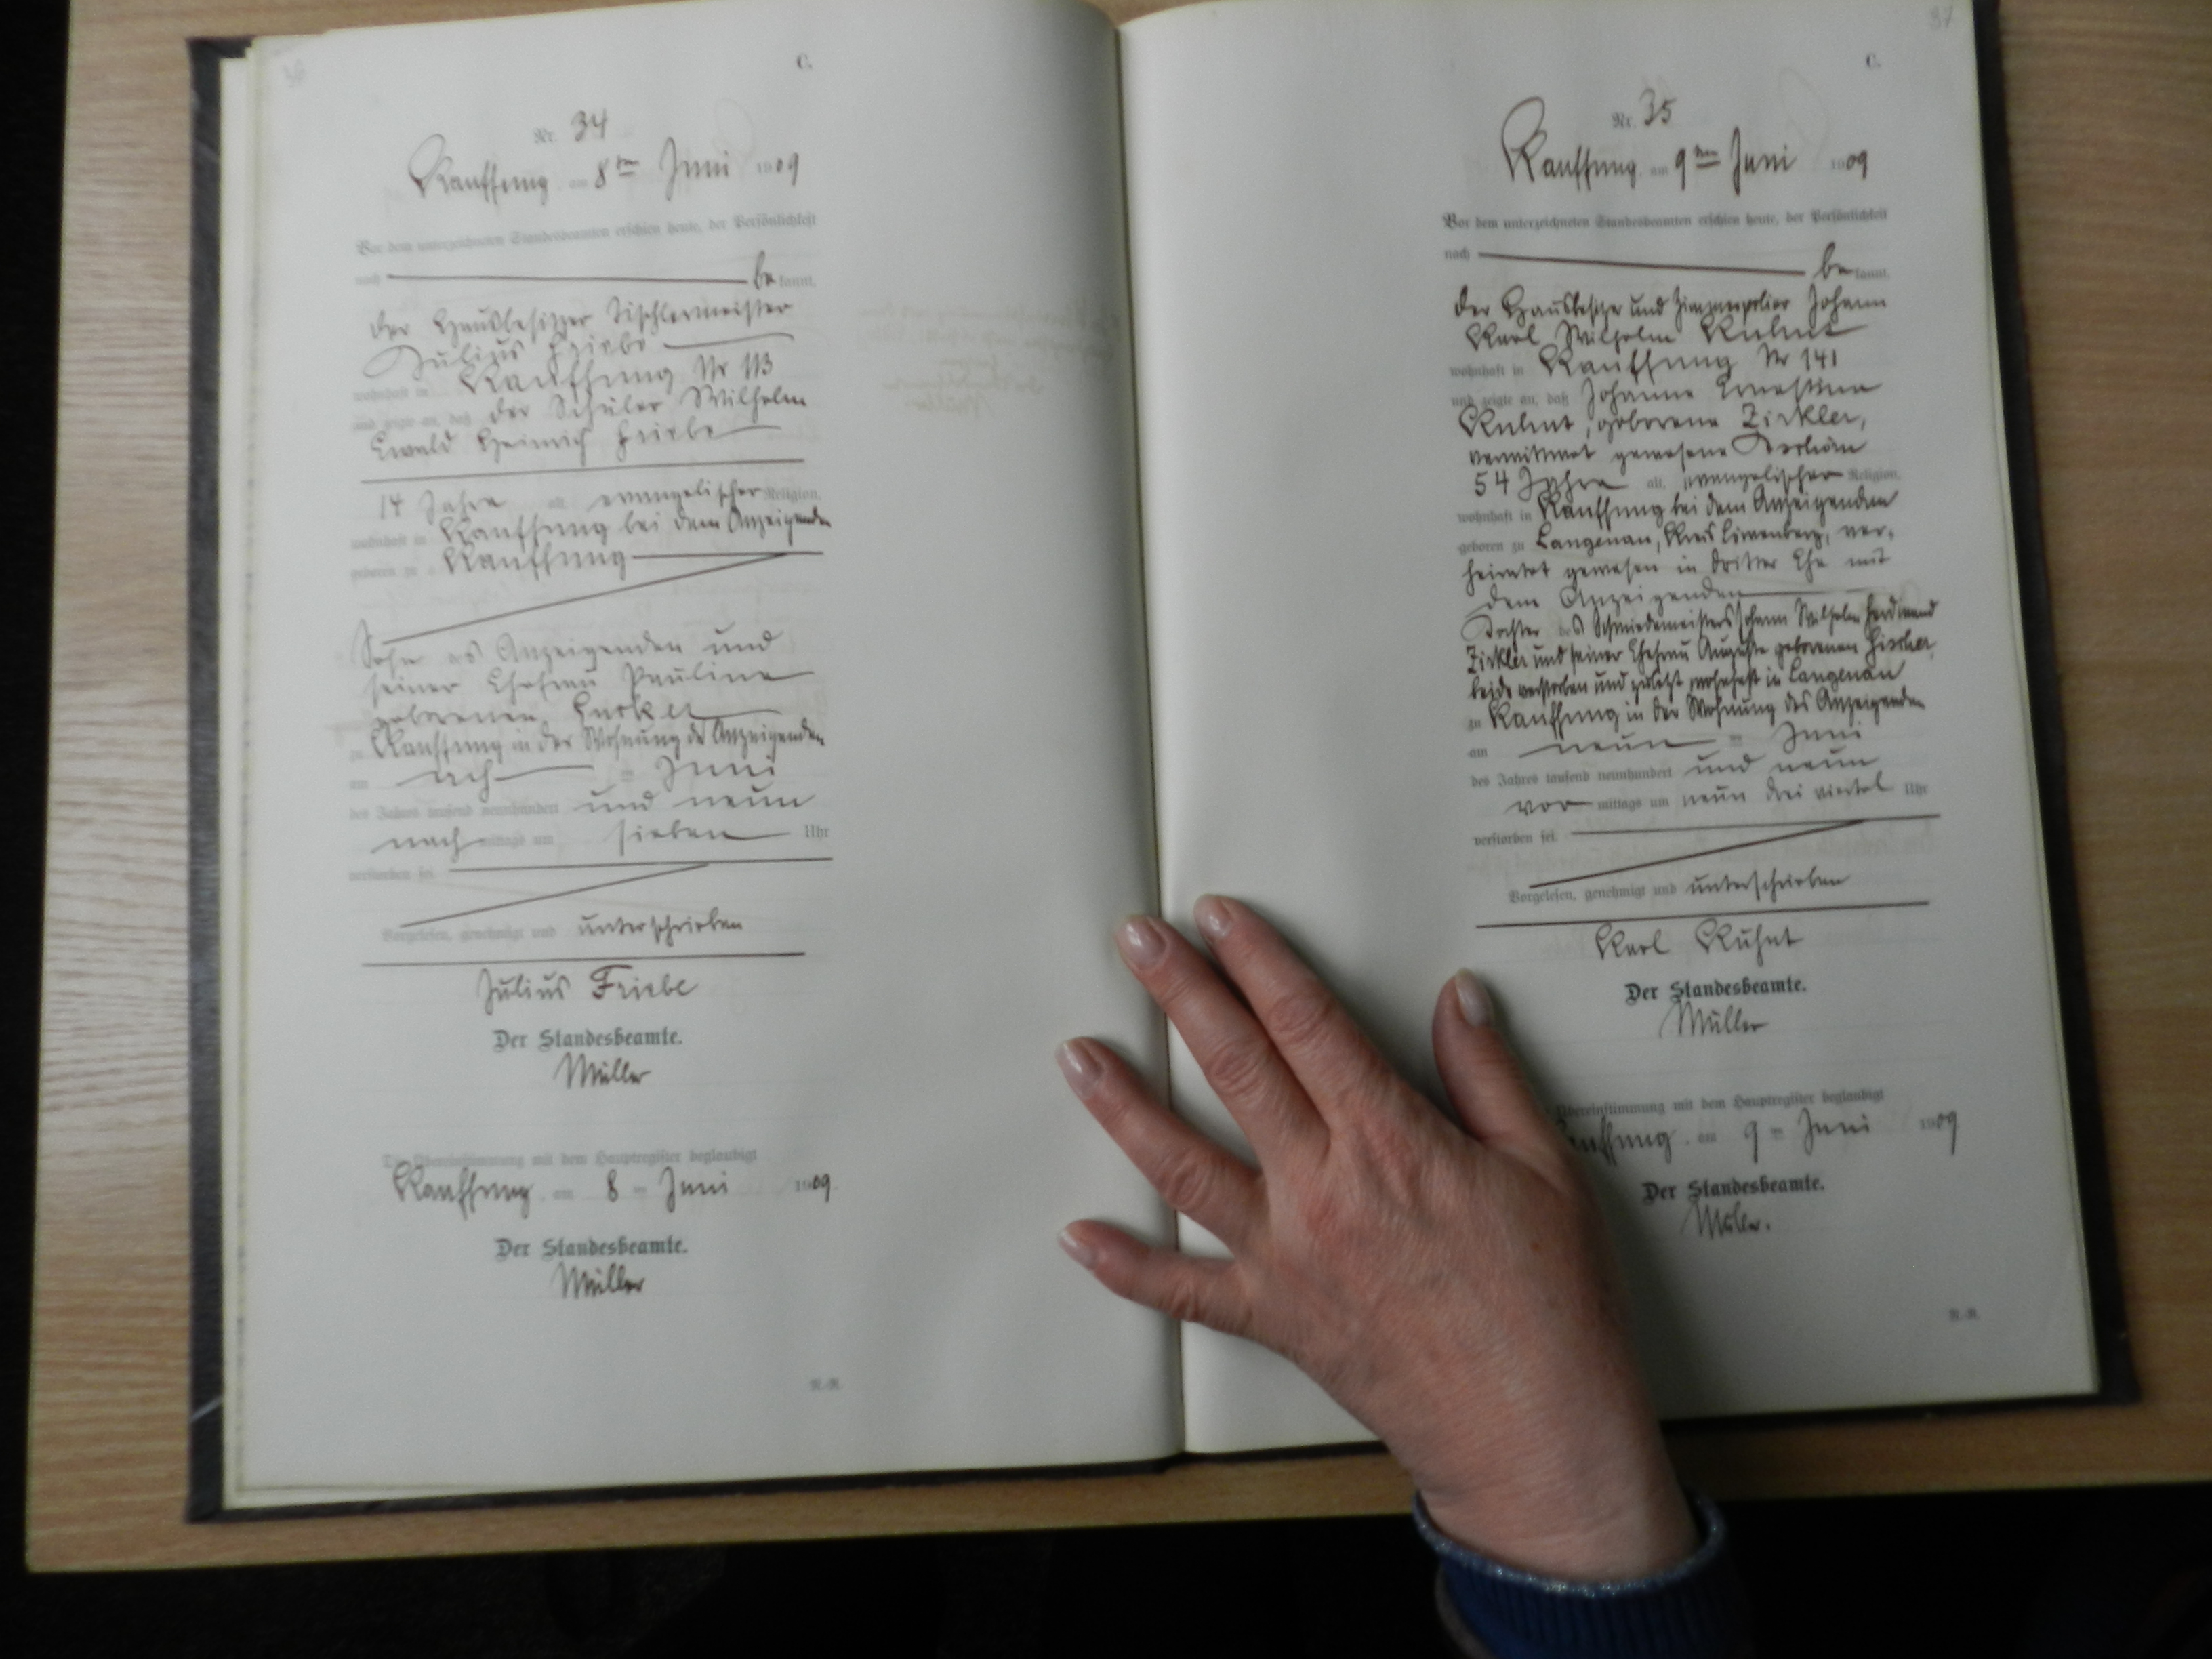 36
C.
Nr. 34
Kauffung am 8ten Juni 1909
Vor dem unterzeichneten Standesbeamten erschien heute, der Persönlichkeit
nach be kannt,
der Hausbesitzer Tischlermeister
Julius Friebe
wohnhaft in Kauffung Nr 113
und zeigte an, daß der Schüler Wilhelm
Ewald Heinrich Friebe
14 Jahre alt, evangelischer Religion,
wohnhaft in Kauffung bei dem Anzeigenden
geboren zu Kauffung
Sohn des Anzeigenden und
seiner Ehefrau Pauline
geborenen
zu Kauffung in der Wohnung des Anzeigenden
am ach ten Juni
des Jahres tausend neunhundert und neun
nach mittags um sieben Uhr
verstorben sei.
Vorgelesen, genehmigt und unterschrieben
Julius Friebe
Der Standesbeamte.
Müller
Die Übereinstimmung mit dem Hauptregister beglaubigt
Kauffung am 8 ten Juni 1909.
Der Standesbeamte.
Müller
37
C.
Nr. 35
Kauffung am 9ten Juni 1909
Vor dem unterzeichneten Standesbeamten erschien heute, der Persönlichkeit
nach be kannt,
der Hausbesitzer und Zimmerpolier Johann
Karl Wilhelm Kuhnt
wohnhaft in Kauffung Nr 141
und zeigte an, daß Johanne Ernestine
Kuhnt, geborene Zirkler,
verwittwet gewesene
54 Jahre alt, evangelischer Religion,
wohnhaft in Kauffung bei dem Anzeigenden
geboren zu Langenau, Kreis Löwenberg, ver-
heiratet gewesen in dritter Ehe mit
dem Anzeigenden
Tochter des Schmiedemeisters Johann Wilhelm Ferdinand
Zirkler und seiner Ehefrau Auguste geborenen Fischer,
beide verstorben und zuletzt wohnhaft in Langenau
zu Kauffung in der Wohnung des Anzeigenden
am neun ten Juni
des Jahres tausend neunhundert und neun
vor mittags um neun drei viertel Uhr
verstorben sei.
Vorgelesen, genehmigt und unterschrieben
Karl Kuhnt
Der Standesbeamte.
Müller
Übereinstimmung mit dem Hauptregister beglaubigt
uffung am 9 ten Juni 1909
Der Standesbeamte.
Müller.